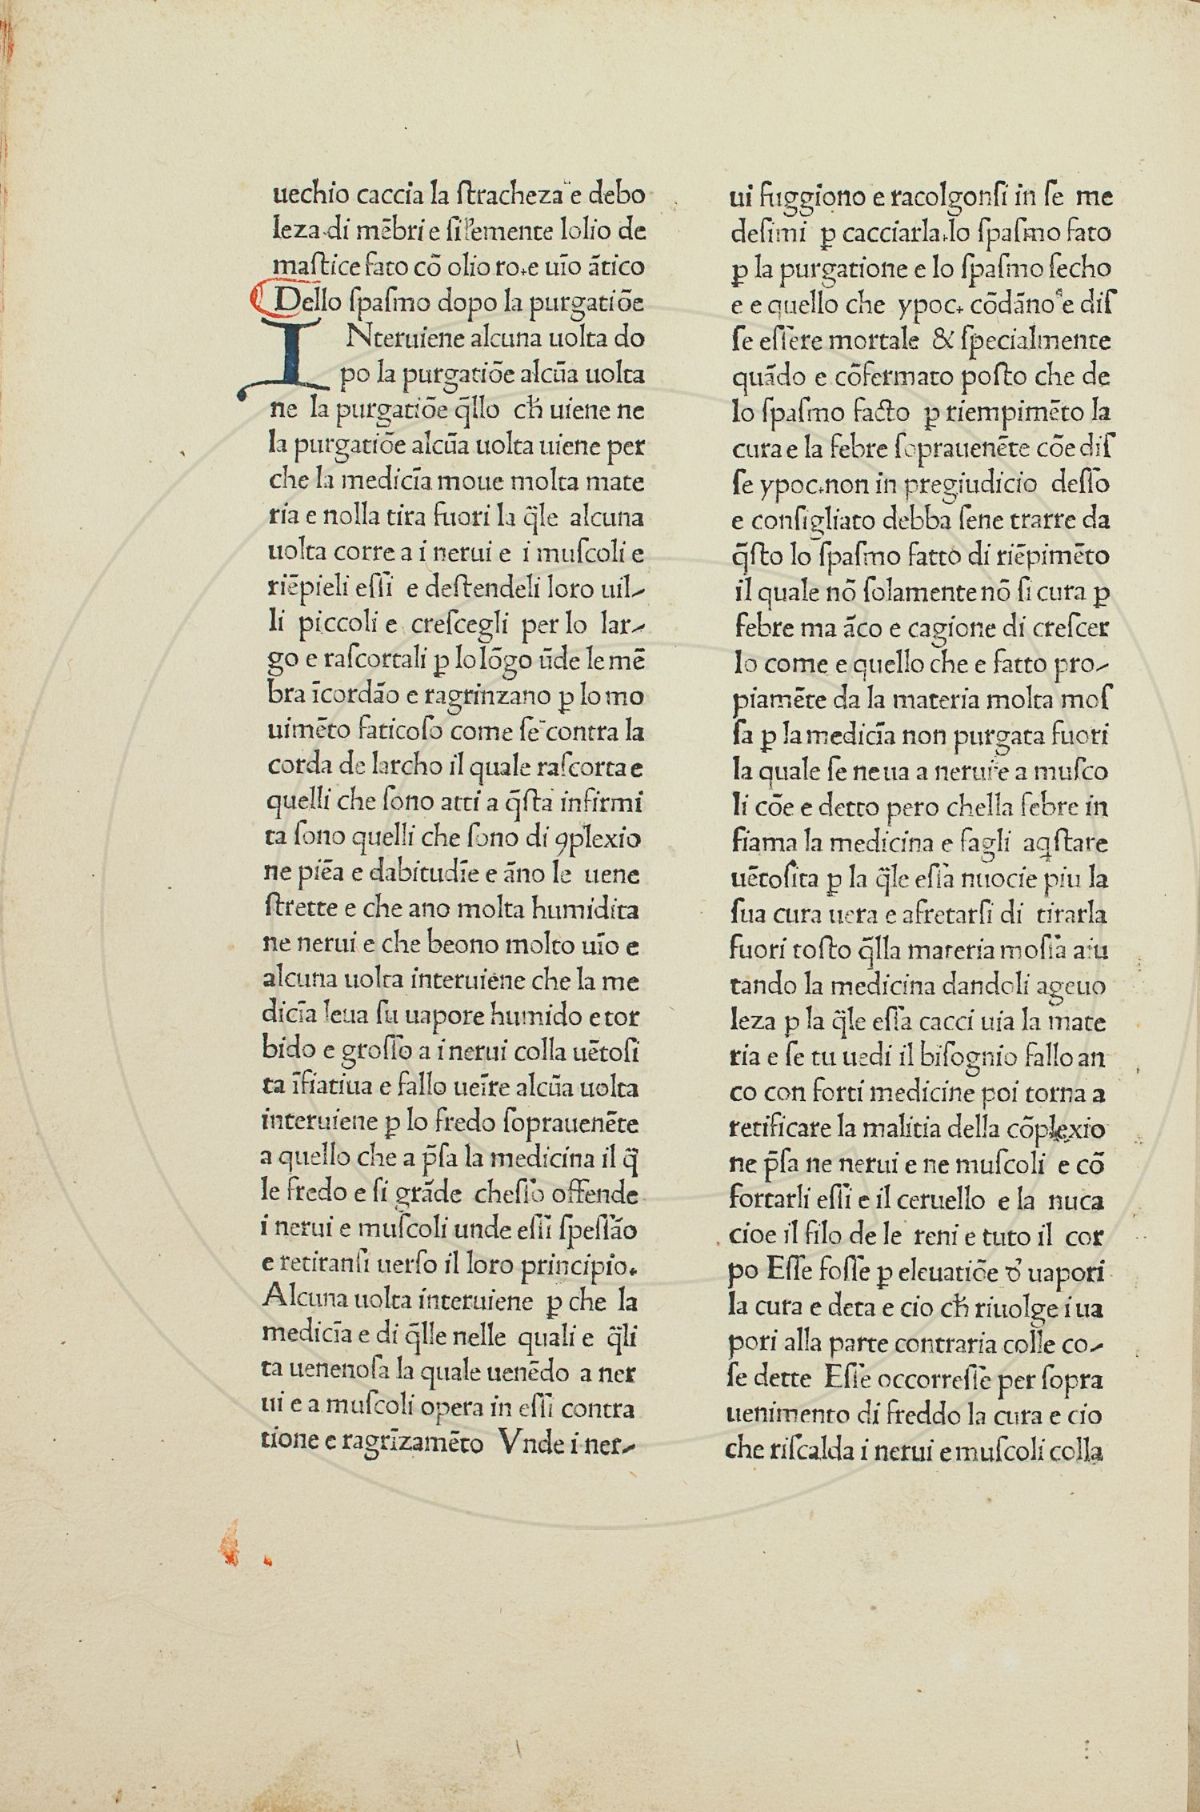 uechio caccia la ſtracheza e debo
leza.di mēbri e ſiłemente lolio de
maſtice fato cō olio ro.e uīo ātico
Dello ſpaſmo dopo la purgatiōe
INteruiene alcuna uolta do
po la purgatiōe alcūa uolta
ne la purgatiōe q̄llo ch̄ uiene ne
la purgatiōe alcūa uolta uiene per
che la medicīa moue molta mate
ria e nolla tira fuori la q̄le alcuna
uolta corre a i nerui e i muſcoli e
riēpieli eſſi e deſtendeli loro uil-
li piccoli e creſcegli per lo lar-
go e raſcortali ꝑ lo lōgo ūde le mē
bra īcordāo e ragrinzano ꝑ lo mo
uimēto faticoſo come ſe contra la
corda de larcho il quale raſcorta e
quelli che ſono atti a q̄ſta infirmi
ta ſono quelli che ſono di ꝯplexio
ne piēa e dabitudīe e āno le uene
ſtrette e che ano molta humidita
ne nerui e che beono molto uīo e
alcuna uolta interuiene che la me
dicīa leua ſu uapore humido e tor
bido e groſſo a i nerui colla uētoſi
ta īfiatiua e fallo ueīre alcūa uolta
interuiene ꝑ lo fredo ſoprauenēte
a quello che a p̄ſa la medicina il q̄
le fredo e ſi grāde cheſſo offende
i nerui e muſcoli unde eſſi ſpeſſāo
e retiranſi uerſo il loro principio.
Alcuna uolta interuiene ꝑ che la
medicīa e di q̄lle nelle quali e q̄li
ta uenenoſa la quale uenēdo a ner
ui e a muſcoli opera in eſſi contra
tione e ragrīzamēto Vnde i ner-
ui fuggiono e racolgonſi in ſe me
deſimi ꝑ cacciarla.lo ſpaſmo fato
ꝑ la purgatione e lo ſpaſmo ſecho
e e quello che ypoc. cōdāno e diſ
ſe eſſere mortale & ſpecialmente
quādo e cōfermato poſto che de
lo ſpaſmo facto ꝑ riempimēto la
cura e la febre ſoprauenēte cōe diſ
ſe ypoc.non in pregiudicio deſſo
e conſigliato debba ſene trarre da
q̄ſto lo ſpaſmo fatto di riēpimēto
il quale nō ſolamente nō ſi cura ꝑ
febre ma āco e cagione di creſcer
lo come e quello che e fatto pro-
piamēte da la materia molta moſ
ſa ꝑ la medicīa non purgata fuori
la quale ſe ne ua a nerui e a muſco
li cōe e detto pero chella febre in
fiama la medicina e fagli aqſtare
uētoſita ꝑ la q̄le eſſa nuocie piu la
ſua cura uera e afretarſi di tirarla
fuori toſto q̄lla materia moſſa aiu
tando la medicina dandoli ageuo
leza ꝑ la q̄le eſſa cacci uia la mate
ria e ſe tu uedi il biſognio fallo an
co con forti medicine poi torna a
retificare la malitia della cōplexio
ne p̄ſa ne nerui e ne muſcoli e cō
fortarli eſſi e il ceruello e la nuca
cioe il filo de le reni e tuto il cor
po Eſſe foſſe ꝑ eleuatiōe đ uapori
la cura e deta e cio ch̄ riuolge i ua
pori alla parte contraria colle co-
ſe dette Eſſe occorreſſe per ſopra
uenimento di freddo la cura e cio
che riſcalda i nerui e muſcoli colla